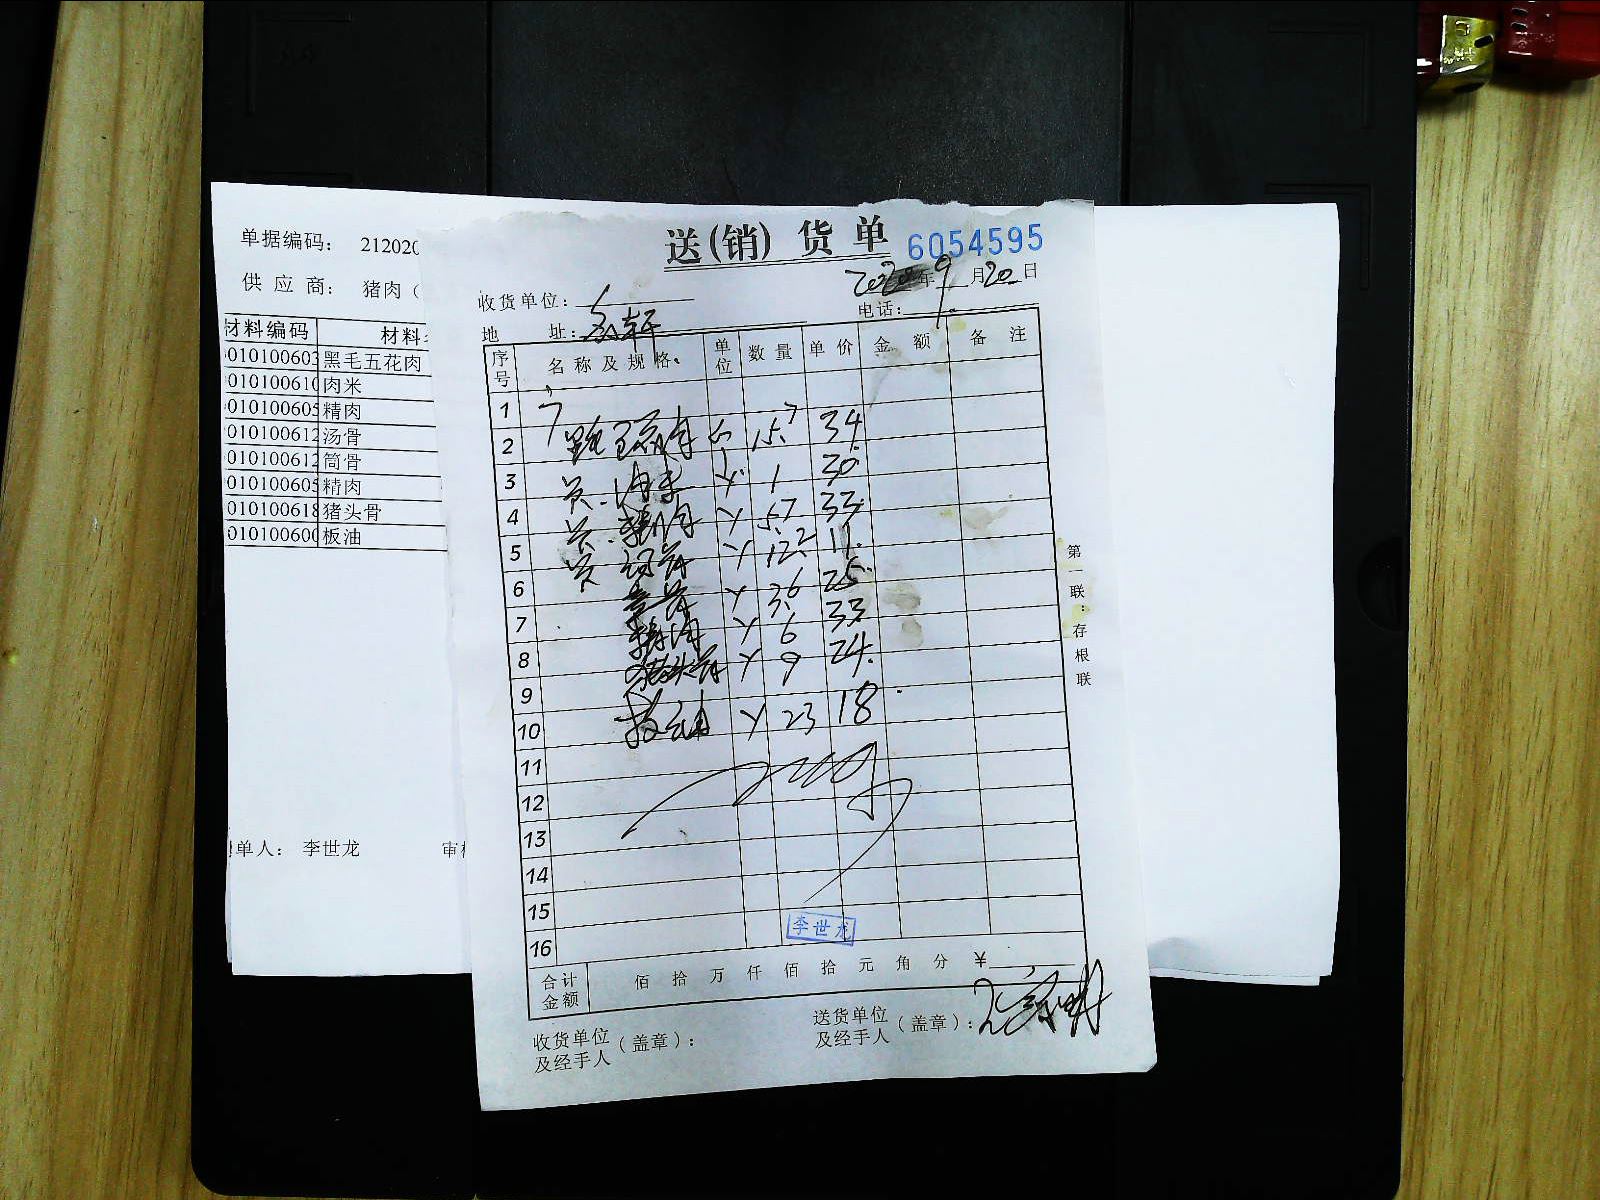 单据编码: 212020
供 应 商: 猪肉(
材料编码 材料名
010100603 黑毛五花肉
010100610 肉米
010100605 精肉
010100612 汤骨
010100612 筒骨
010100605 精肉
010100618 猪头骨
010100600 板油
单人: 李世龙 审核
送(销) 货 单 6054595
2020年9月20日
收货单位:
电话:
地 址:
序号 名称及规格 单位 数量 单价 金额 备注
1
2 黑毛五花肉 15.7 34
3 肉米 1 30
4 精肉 5.7 33
5 汤骨 12.2 11
6 筒骨 3.6 25
7 精肉 6 33
8 猪头骨 9 24
9
10 板油 23 18
11
12
13
14
15
16
李世龙
合计金额 佰 拾 万 仟 佰 拾 元 角 分 ¥
收货单位及经手人(盖章): 送货单位及经手人(盖章):
第一联:存根联